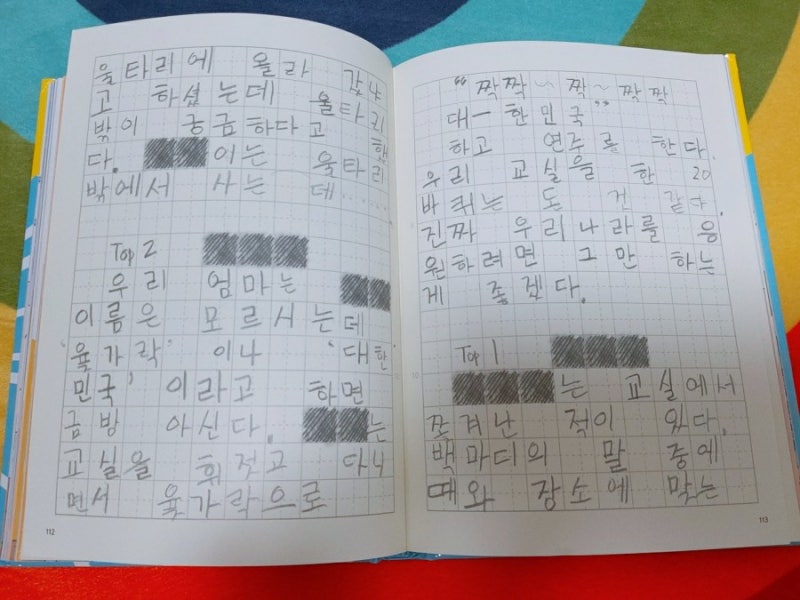 울타리에 올라 갔냐
고 하셨는데 울타리
밖이 궁금하다고 했
다. 이는 울타리
밖에서 사는데……
Top 2
우리 엄마는
이름은 모르시는데
'윷가락' 이나 '대한
민국' 이라고 하면
금방 아신다. 는
교실을 휘젓고 다니
면서 윷가락으로
112
"짝짝~ 짝~ 짝짝
대ㅡ한민국"
하고 연주를 한다.
우리 교실을 한 20
바퀴는 돈 것 같다.
진짜 우리나라를 응
원하려면 그만 하는
게 좋겠다.
Top 1
는 교실에서
쫓겨난 적이 있다.
백마디의 말 중에
때와 장소에 맞는
113